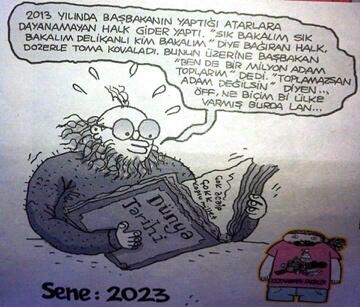 2013 YILINDA BAŞBAKANIN YAPTIĞI ATARLARA
DAYANAMAYAN HALK GİDER YAPTI. "SIK BAKALIM SIK
BAKALIM DELİKANLI KİM BAKALIM" DİYE BAĞIRAN HALK,
DOZERLE TOMA KOVALADI. BUNUN ÜZERİNE BAŞBAKAN
"BEN DE BİR MİLYON ADAM
TOPLARIM" DEDİ. "TOPLAMAZSAN
ADAM DEĞİLSİN" DİYEN...
ÖFF, NE BİÇİM Bİ ÜLKE
VARMIŞ BURDA LAN...
Dünya
Tarihi
Sene: 2023